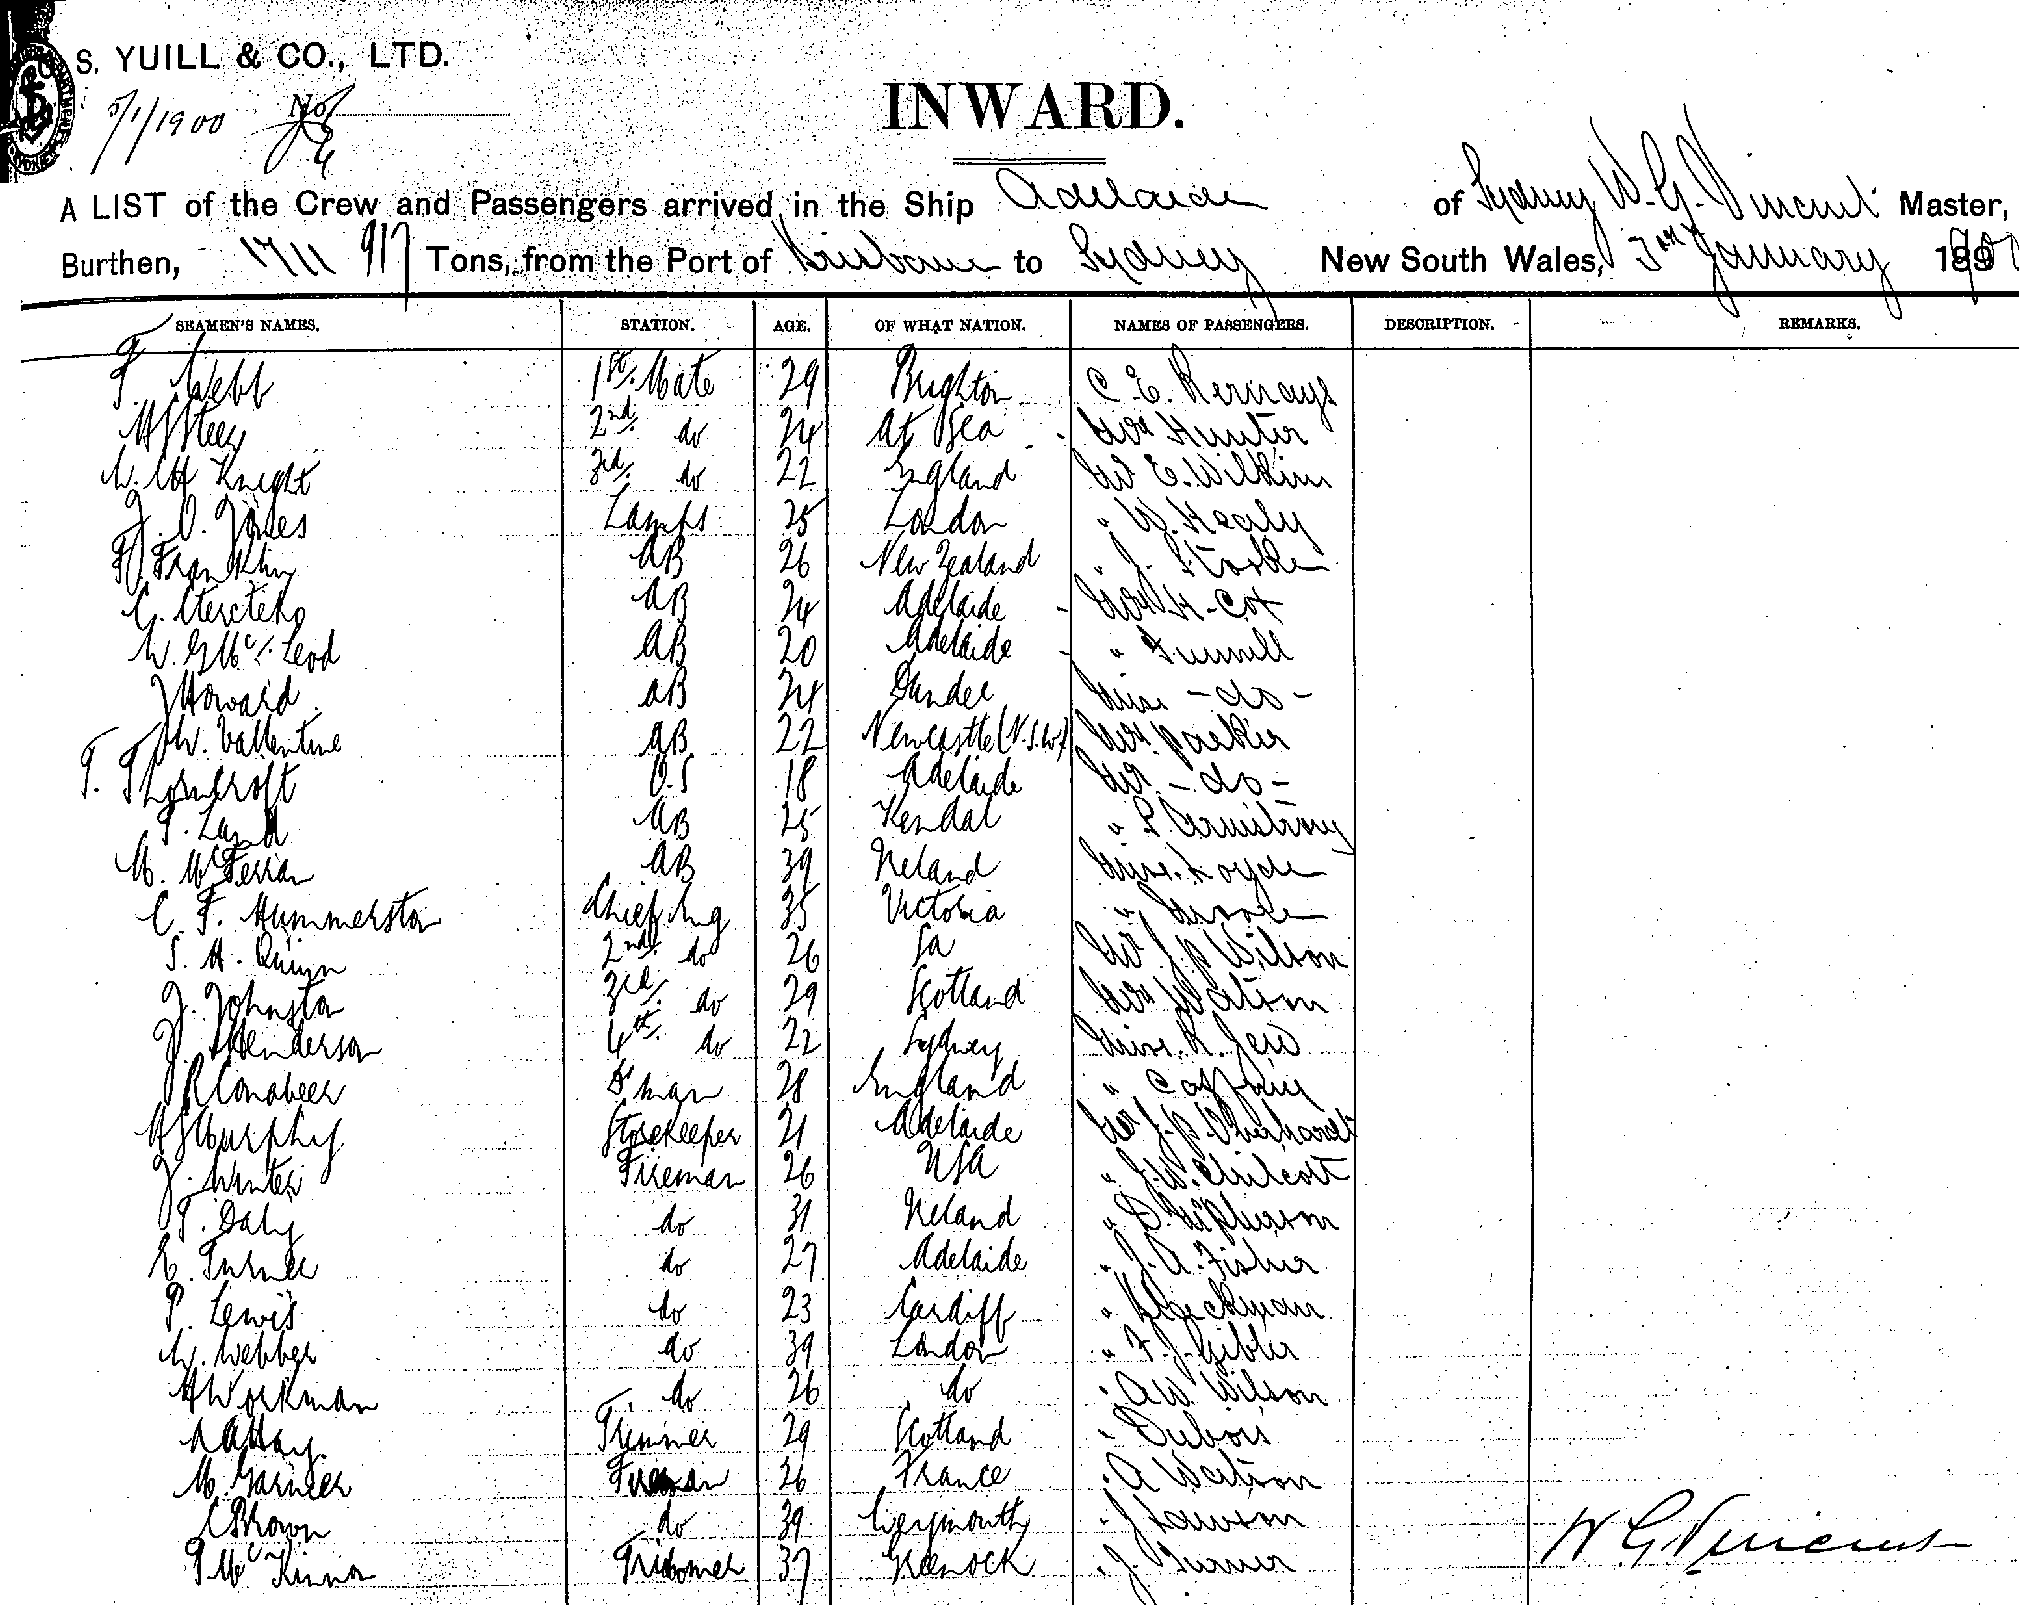 S. YUILL & CO., LTD.
5/1/1900
INWARD.
A LIST of the Crew and Passengers arrived in the Ship Adelaide of Sydney W. G. Vincent Master,
Burthen, 1711 917 Tons, from the Port of Brisbane to Sydney New South Wales, 3rd January 1900
SEAMEN'S NAMES. STATION. AGE. OF WHAT NATION. NAMES OF PASSENGERS. DESCRIPTION. REMARKS.
F. Webb 1st. Mate 29 Brighton C. E. Bernays
2nd. do 24 At Sea Mrs Hunter
W. H Knight 3rd. do 22 England Mr E. Wilkins
J. O. Jones Lamps 25 London " W. Healy
F Franklin AB 26 New Zealand " J.
C. AB 24 Adelaide Mrs H. Cox
W. G Mc. Leod AB 20 Adelaide "
J Howard AB 24 Dundee Miss - do -
W. Vallentine AB 22 Newcastle (N.S.W) Mrs. Parker
T. Thorncroft O.S 18 Adelaide Mr - do -
T. Land AB 25 Kendal " Armstrong
M. McFerran AB 39 Ireland Miss
C. F. Hummerston Chief Eng 35 Victoria "
S. H. Quinn 2nd. do 26 Sa Mr J. P Wilson
J. Johnston 3rd. do 29 Scotland Mrs Watson
J. Henderson 4th. do 22 Sydney Miss. R.
R Conabeer D'man 28 England "
H J Murphy Storekeeper 21 Adelaide Mr J. P.
J. Winter Fireman 26 USA " J. W. Chilcott
T. Daly do 31 Ireland " D. McPherson
E. Turner do 27 Adelaide " J. A. Fisher
P. Lewis do 23 Cardiff "
W. Webber do 39 London " F. J. Gibler
H Workman do 26 do " A W. Wilson
A Hay Trimmer 29 Scotland " Dubois
M. Garnier Fireman 26 France " A Watson
C Brown do 39 Weymouth " J Lawson
P Mc Kinna Trimmer 37 Greenock " J. Turner
W G Vincent